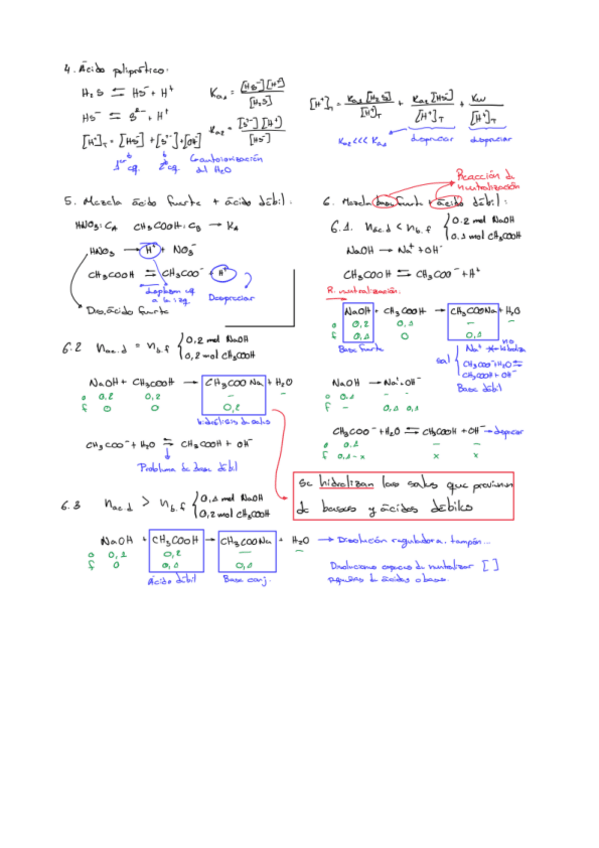 4. Ácido poliprótico:
H₂S ⇌ HS⁻ + H⁺
Ka₁ = [HS⁻][H⁺] / [H₂S]
HS⁻ ⇌ S²⁻ + H⁺
Ka₂ = [S²⁻][H⁺] / [HS⁻]
[H⁺]T = [HS⁻] + [S²⁻] + [OH⁻]
1er eq. 2º eq. autoionización del H₂O
[H⁺]T = Ka₁[H₂S] / [H⁺]T + Ka₂[HS⁻] / [H⁺]T + Kw / [H⁺]T
Ka₂ <<< Ka₁ despreciar despreciar
5. Mezcla ácido fuerte + ácido débil:
HNO₃: CA CH₃COOH: CB → KA
HNO₃ → H⁺ + NO₃⁻
CH₃COOH ⇌ CH₃COO⁻ + H⁺
desplazam eq a la izq. Despreciar
Dis. ácido fuerte
Reacción de neutralización
6. Mezcla base fuerte + ácido débil:
6.1. nac.d < nb.f { 0.2 mol NaOH
0,1 mol CH₃COOH
NaOH → Na⁺ + OH⁻
CH₃COOH ⇌ CH₃COO⁻ + H⁺
R. neutralización:
NaOH + CH₃COOH → CH₃COONa + H₂O
0 0,2 0,1 — —
f 0,1 0 0,1
Base fuerte
sal { Na⁺ no hidroliza
CH₃COO⁻+H₂O ⇌ CH₃COOH + OH⁻
Base débil
NaOH → Na⁺ + OH⁻
0 0.1 — —
f — 0,1 0,1
CH₃COO⁻ + H₂O ⇌ CH₃COOH + OH⁻ → despreciar
0 0,1 — —
f 0,1-x x x
6.2 nac.d = nb.f { 0.2 mol NaOH
0,2 mol CH₃COOH
NaOH + CH₃COOH → CH₃COONa + H₂O
0 0,2 0,2 — —
f 0 0 0,2
hidrólisis de sales
CH₃COO⁻ + H₂O ⇌ CH₃COOH + OH⁻
Problema de base débil
Se hidrolizan las sales que provienen
de bases y ácidos débiles
6.3 nac.d > nb.f { 0,1 mol NaOH
0,2 mol CH₃COOH
NaOH + CH₃COOH → CH₃COONa + H₂O → Disolución reguladora, tampón...
0 0,1 0,2 — —
f 0 0,1 0,1
Ácido débil Base conj.
Disoluciones capaces de neutralizar [ ]
pequeñas de ácidos o bases.